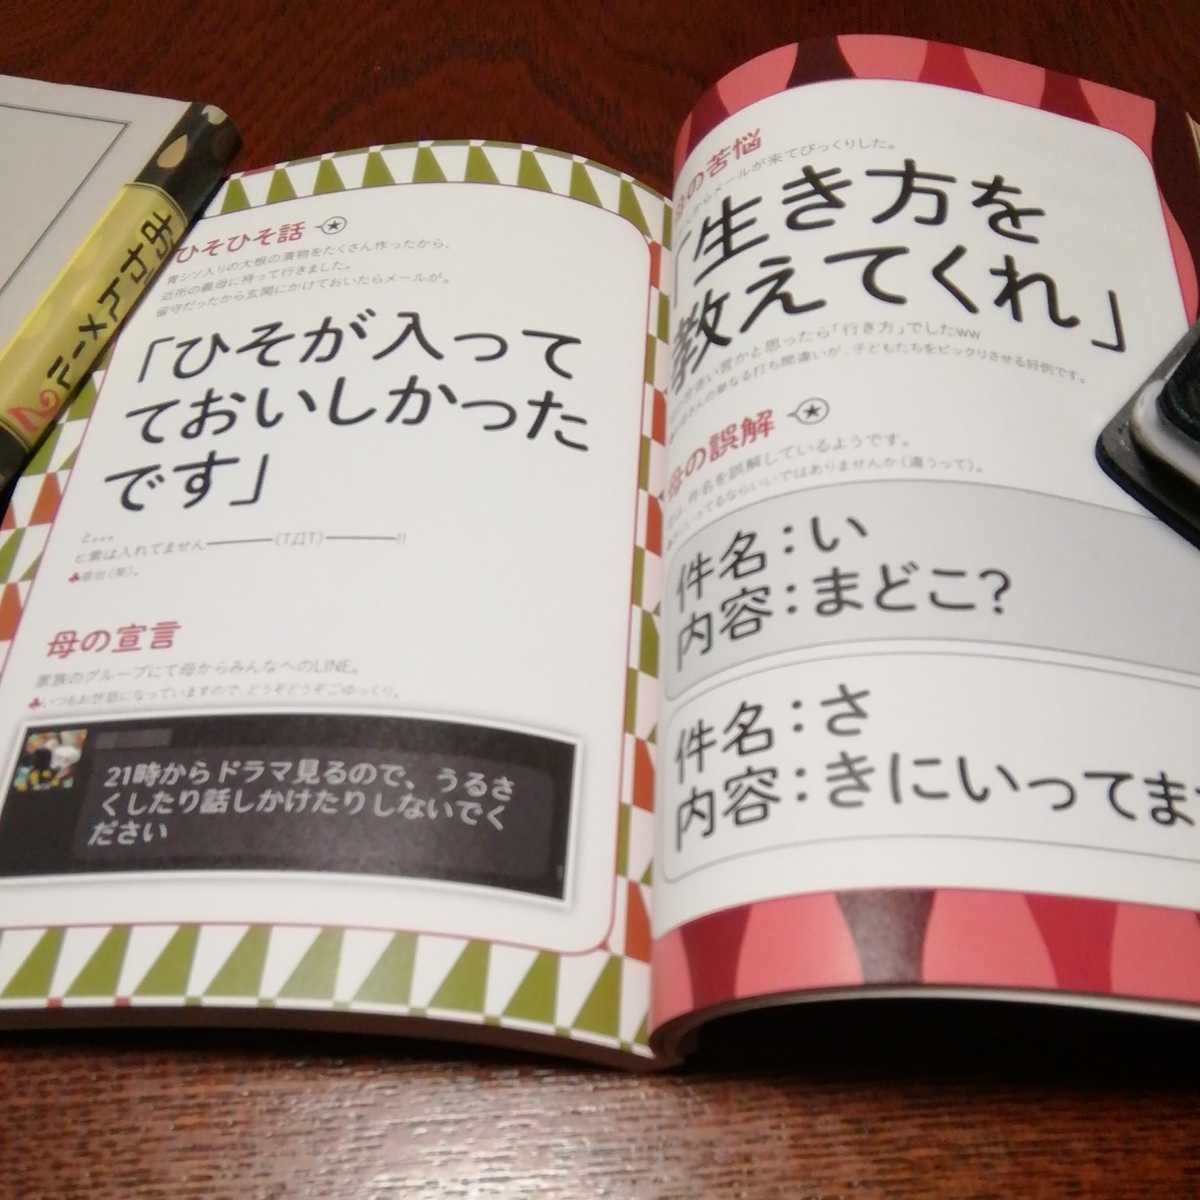 おかんメール2
ひそひそ話
青シソ入りの大根の漬物をたくさん作ったから、
近所の義母に持って行きました。
留守だったから玄関にかけておいたらメールが。
「ひそが入って
ておいしかった
です」
と…。
ヒ素は入れてません━━━━(TДT)━━━━!!
母の宣言
家族のグループにて母からみんなへのLINE。
いつもお世話になっていますので、どうぞどうぞごゆっくり。
21時からドラマ見るので、うるさ
くしたり話しかけたりしないでく
ださい
の苦悩
からメールが来てびっくりした。
「生き方を
教えてくれ」
かと思ったら「行き方」でしたww
さんの単なる打ち間違いが、子どもたちをビックリさせる好例です。
母の誤解
件名を誤解しているようです。
ってるならいいではありませんか(違うって)。
件名：い
内容：まどこ?
件名：さ
内容：きにいってま